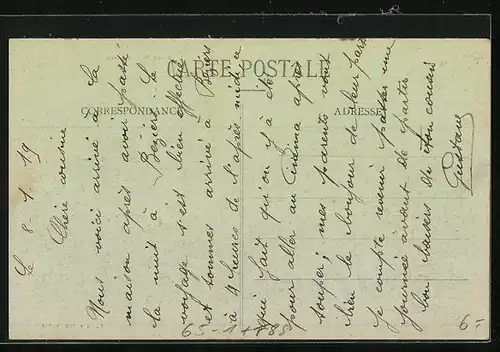 CARTE POSTALE
CORRESPONDANCE
ADRESSE
Le 8-1-19
Chère cousine
Nous voici arrivé à la
maison après avoir passé
la nuit à Beziers le
voyage s'est bien effectué
et sommes arrivé à Beziers
à 4 heures de l'après midi
qui fait qu'on y a été
pour aller au Cinéma après
souper; mes parents vont
bien le bonjour de leur part
je compte revenir passer une
journée avant de partir
bon baisers de ton cousin
Gustave
65-1+785
6-